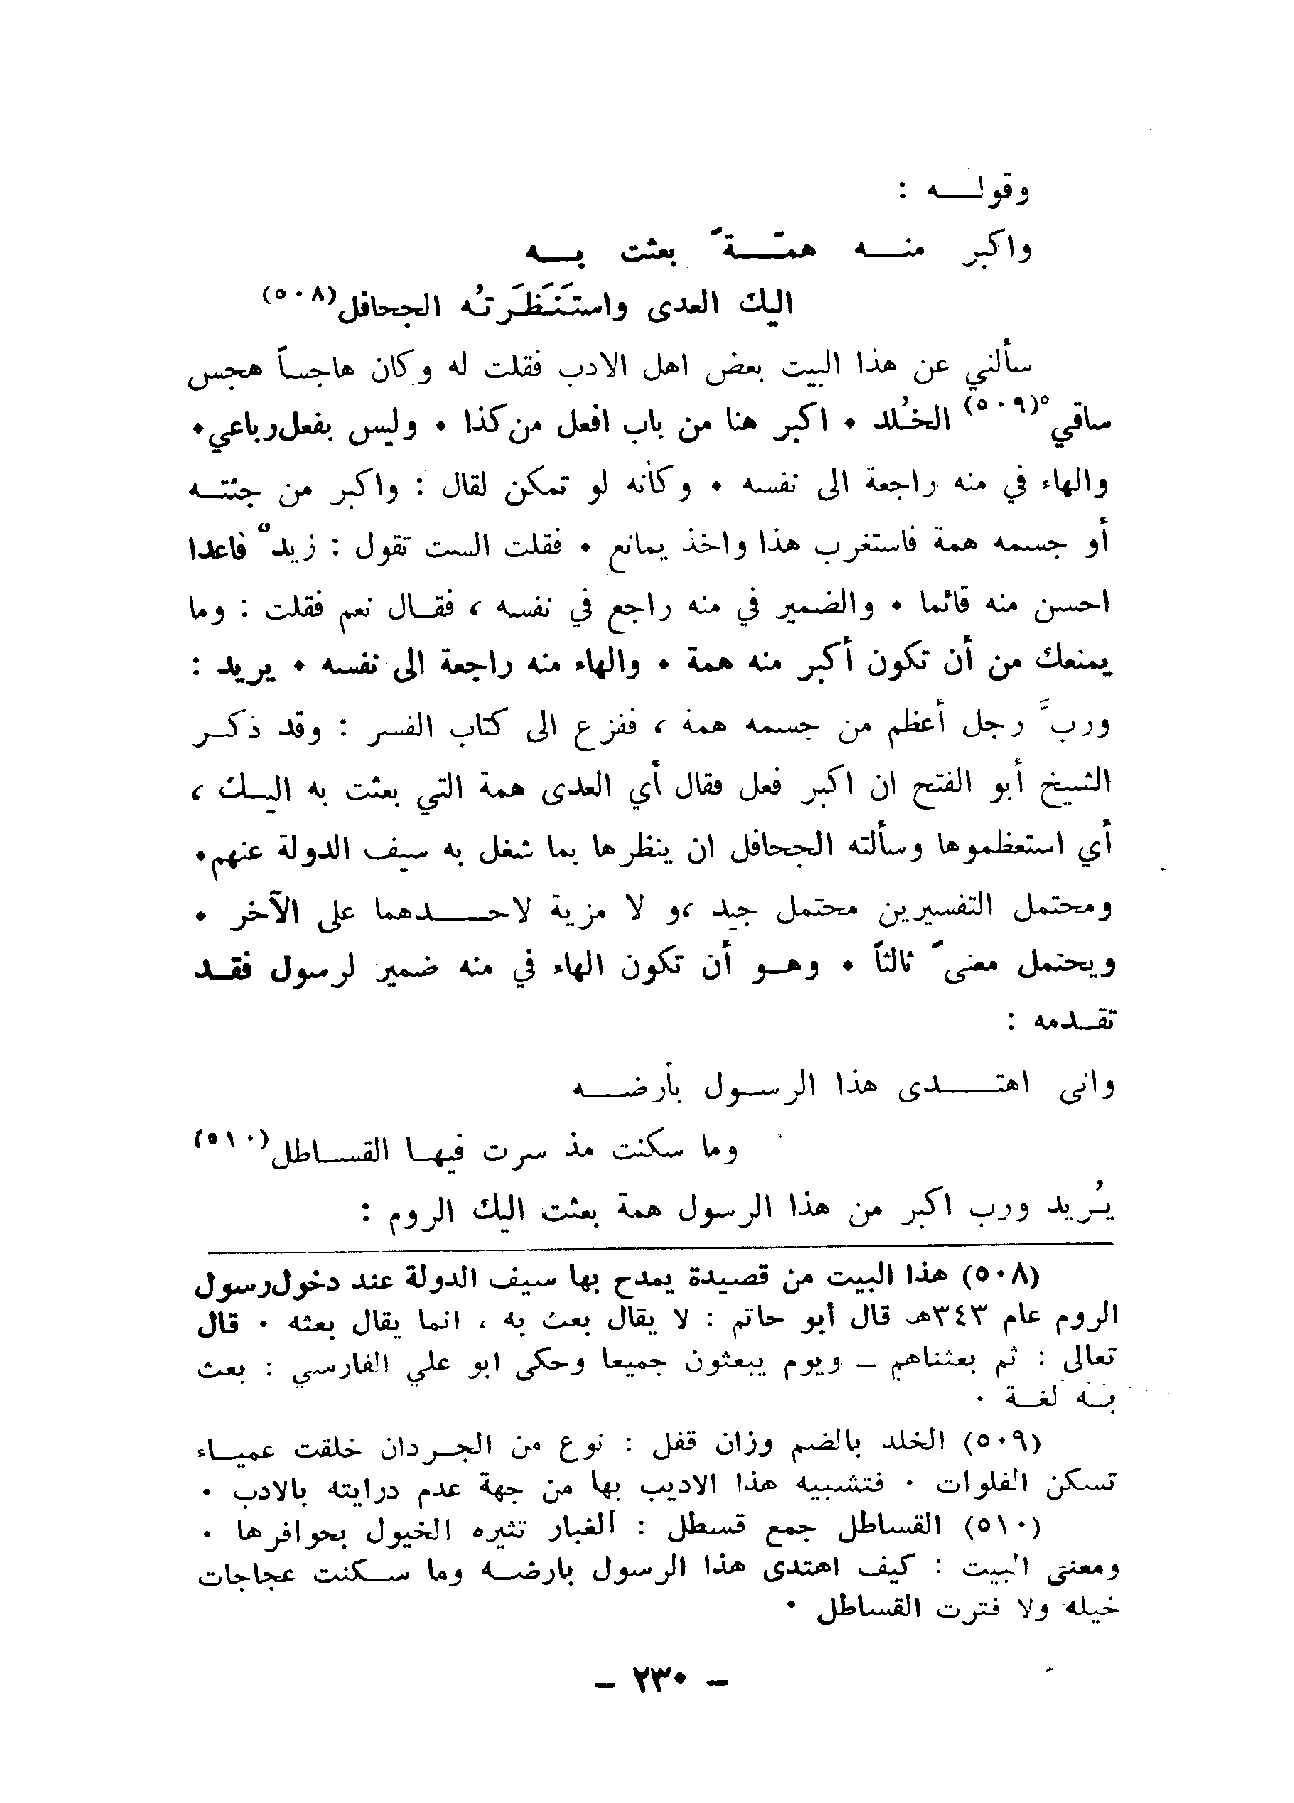 وقولــه :
واكبر منــه همّــةً بعثت بــه
اليك العدى واستَنَظَرتهُ الجحافل(٥٠٨)
سألني عن هذا البيت بعض اهل الادب فقلت له وكان هاجساً هجس
ساقي(٥٠٩)° الخُلد • اكبر هنا من باب افعل من كذا • وليس بفعل رباعي •
والهاء في منه راجعة الى نفسه • وكأنه لو تمكن لقال : واكبر من جثتــه
أو جسمه همة فاستغرب هذا واخذ يمانع • فقلت الست تقول : زيد° قاعدا
احسن منه قائما • والضمير في منه راجع في نفسه ، فقــال نعم فقلت : وما
يمنعك من أن تكون أكبر منه همة • والهاء منه راجعة الى نفسه • يريد :
وربَّ رجل أعظم من جسمه همة ، ففزع الى كتاب الفسر : وقد ذكــر
الشيخ أبو الفتح ان اكبر فعل فقال أي العدى همة التي بعثت به اليــك ،
أي استعظموها وسألته الجحافل ان ينظرها بما شغل به سيف الدولة عنهم•
ومحتمل التفسيرين محتمل جيد ،و لا مزية لاحــدهما على الآخر •
ويحتمل معنىً ثالثاً • وهــو أن تكون الهاء في منه ضمير لرسول فقــد
تقــدمه :
وانى اهتــدى هذا الرســول بأرضــه
وما سكنت مذ سرت فيهــا القســاطل(٥١٠)
يُريد ورب اكبر من هذا الرسول همة بعثت اليك الروم :
(٥٠٨) هذا البيت من قصيدة يمدح بها سيف الدولة عند دخول رسول
الروم عام ٣٤٣هـ قال أبو حاتم : لا يقال بعث به ، انما يقال بعثه • قال
تعالى : ثم بعثناهم – ويوم يبعثون جميعا وحكى ابو علي الفارسي : بعث
بــه لغــة •
(٥٠٩) الخلد بالضم وزان قفل : نوع من الجــردان خلقت عميــاء
تسكن الفلوات • فتشبيه هذا الاديب بها من جهة عدم درايته بالادب •
(٥١٠) القساطل جمع قسطل : الغبار تثيره الخيول بحوافرها •
ومعنى البيت : كيف اهتدى هذا الرسول بارضــه وما ســكنت عجاجات
خيله ولا فترت القساطل •
– ٢٣٠ –